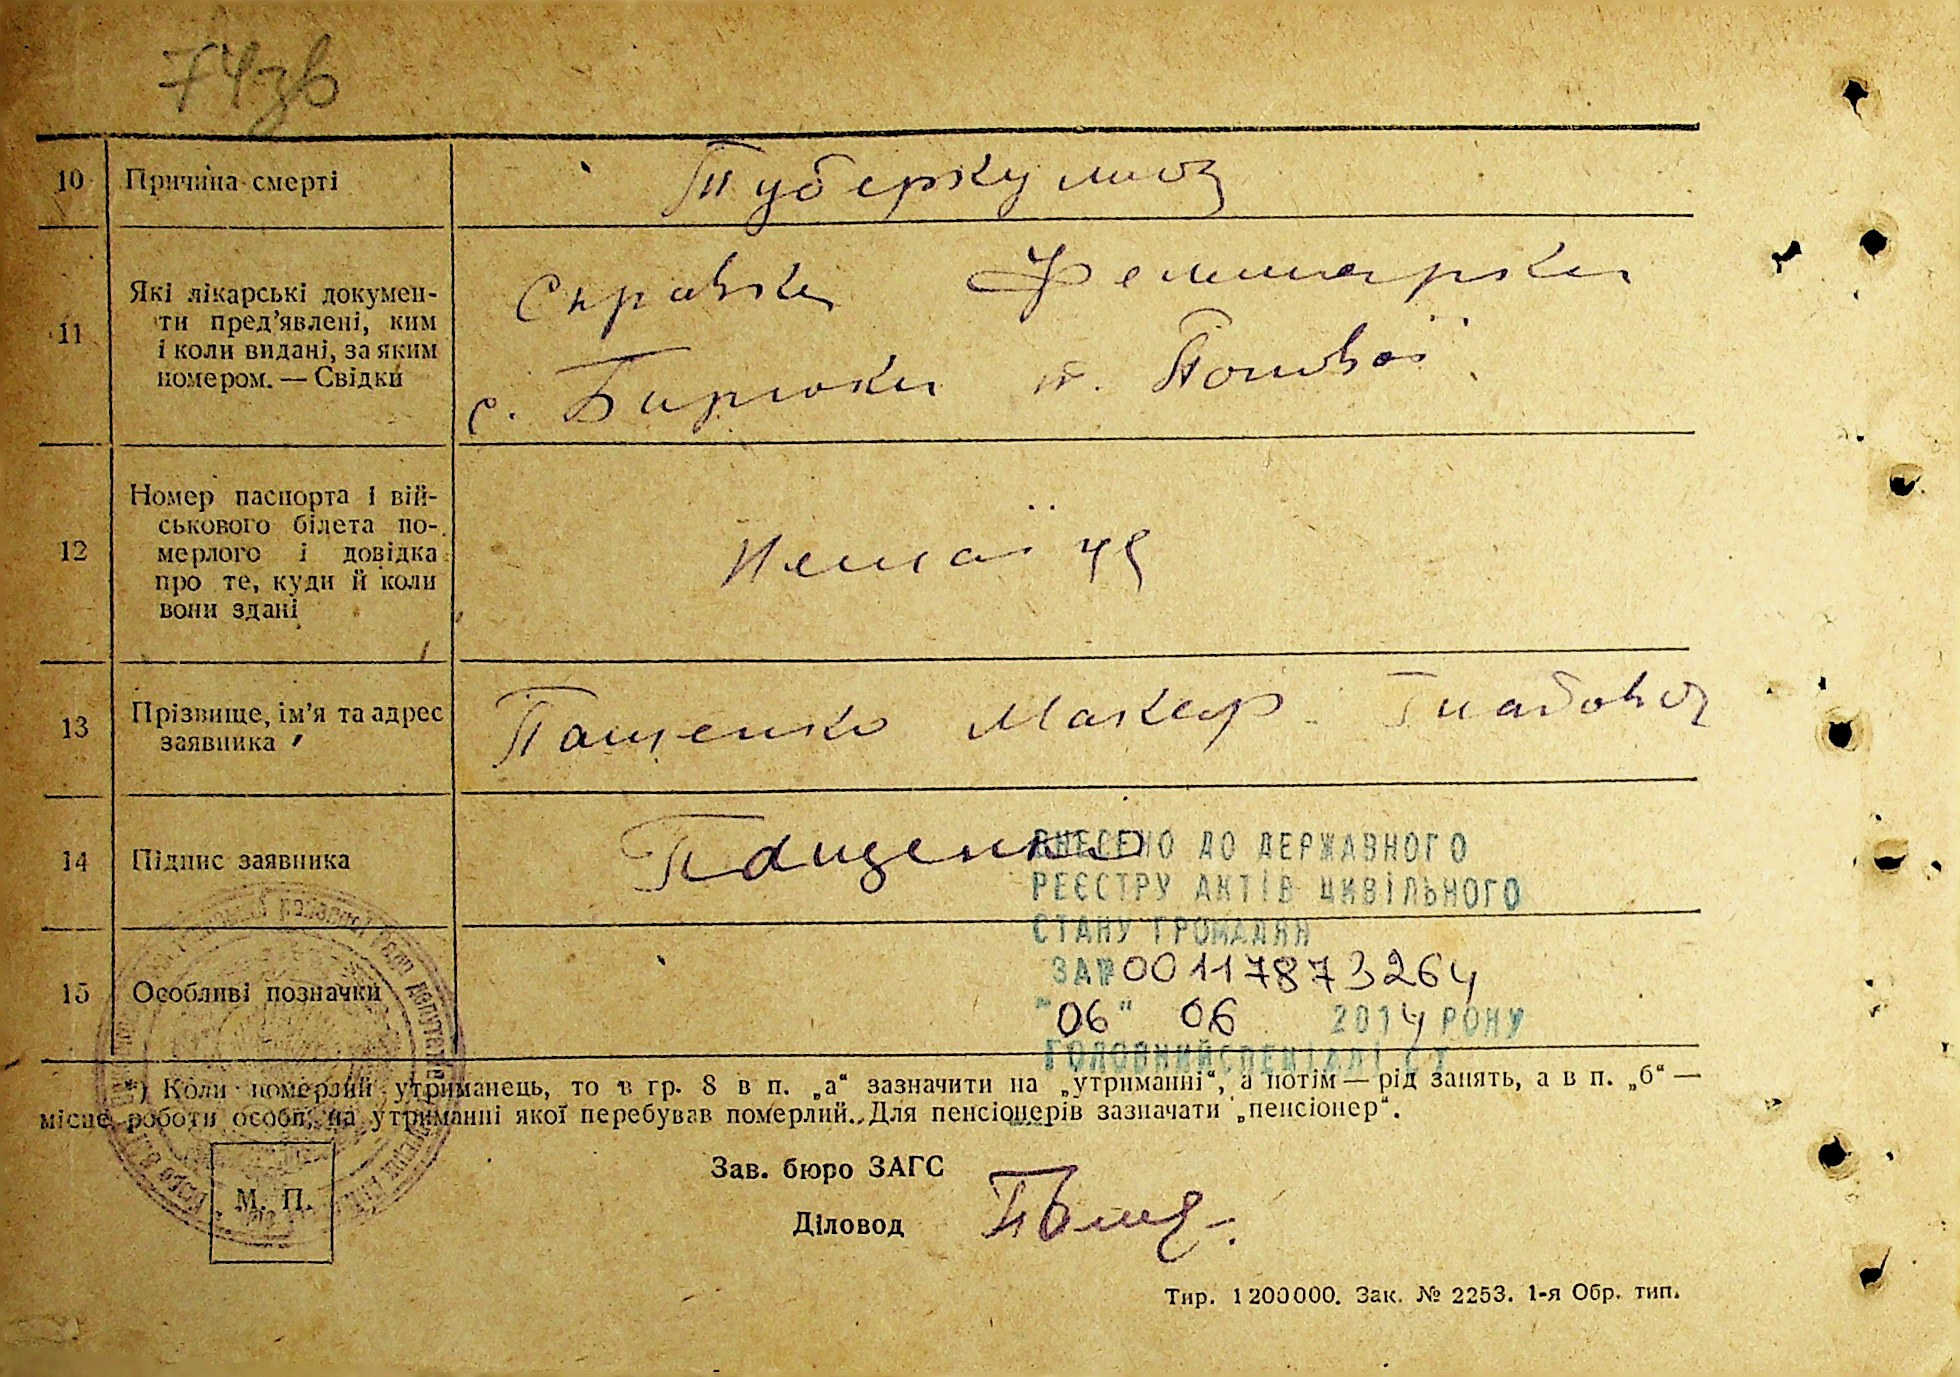 74зв
10 Причина смерті Туберкульоз
11 Які лікарські докумен-
ти пред’явлені, ким
і коли видані, за яким
номером. — Свідки
Справка Фельшерки
с. Бирюки т. Попової
12 Номер паспорта і вій-
ськового білета по-
мерлого і довідка
про те, куди й коли
вони здані
Немає
13 Прізвище, ім’я та адрес
заявника
Пащенко Макар
14 Підпис заявника Пащенко
ВНЕСЕНО ДО ДЕРЖАВНОГО
РЕЄСТРУ АКТІВ ЦИВІЛЬНОГО
СТАНУ ГРОМАДЯН
ЗА № 00117873264
"06" 06 2014 РОКУ
ГОЛОВНИЙ СПЕЦІАЛІСТ
15 Особливі позначки
*) Коли померлий утриманець, то в гр. 8 в п. „а“ зазначити на „утриманні“, а потім — рід занять, а в п. „б“ —
місце роботи особи, на утриманні якої перебував померлий. Для пенсіонерів зазначати „пенсіонер“.
Зав. бюро ЗАГС
М. П.
Діловод
Тир. 1200000. Зак. № 2253. 1-я Обр. тип.